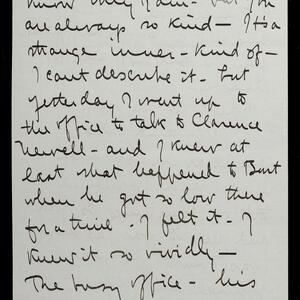 know why I am - but you
are always so kind - It's a
strange inner - kind of -
I can't describe it - but
yesterday I went up to
the office to talk to Clarence
Newell - and I knew at
last what happened to Bart
when he got so low there
for a time. I felt it - I
knew it so vividly -
The busy office - his